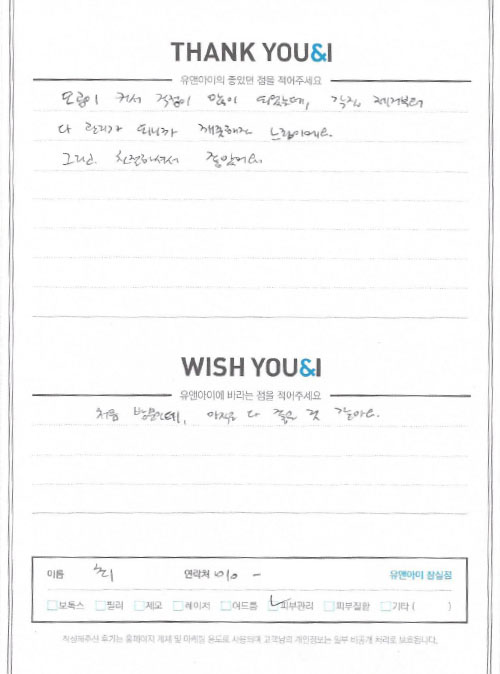 THANK YOU&I
유앤아이의 좋았던 점을 적어주세요
모공이 커서 걱정이 많이 되었는데, 각질 제거부터
다 관리가 되니까 깨끗해진 느낌이에요.
그리고 친절하셔서 좋았어요.
WISH YOU&I
유앤아이에 바라는 점을 적어주세요
처음 방문인데, 아직은 다 좋은 것 같아요.
이름 최 연락처 010 - 유앤아이 잠실점
보톡스 필러 제모 레이저 여드름 피부관리 피부질환 기타 ( )
작성해주신 후기는 홈페이지 게재 및 마케팅 용도로 사용되며 고객님의 개인정보는 일부 비공개 처리로 보호됩니다.